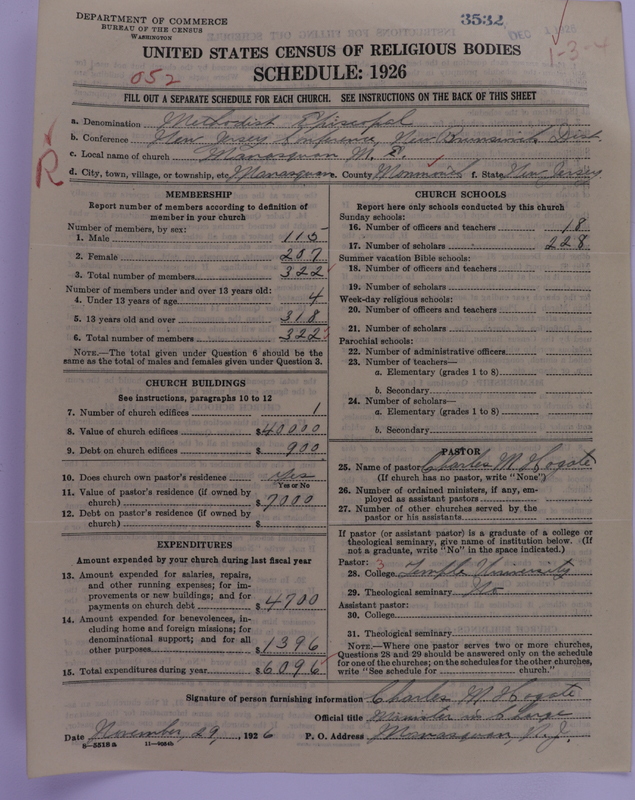 DEPARTMENT OF COMMERCE
BUREAU OF THE CENSUS
WASHINGTON
3532
DEC
1-3-4
UNITED STATES CENSUS OF RELIGIOUS BODIES
SCHEDULE: 1926
052
FILL OUT A SEPARATE SCHEDULE FOR EACH CHURCH. SEE INSTRUCTIONS ON THE BACK OF THIS SHEET
R
a. Denomination Methodist Episcopal
b. Conference New Jersey Conference, New Brunswick Dist.
c. Local name of church Manasquan M. E.
d. City, town, village, or township, etc. Manasquan. County Monmouth f. State New Jersey
MEMBERSHIP
Report number of members according to definition of
member in your church
Number of members, by sex:
1. Male 115
2. Female 207
3. Total number of members 322
Number of members under and over 13 years old:
4. Under 13 years of age 4
5. 13 years old and over 318
6. Total number of members 322
NOTE.—The total given under Question 6 should be the
same as the total of males and females given under Question 3.
CHURCH BUILDINGS
See instructions, paragraphs 10 to 12
7. Number of church edifices 1
8. Value of church edifices $40000
9. Debt on church edifices $ 900
10. Does church own pastor's residence Yes
Yes or No
11. Value of pastor's residence (if owned by
church) $7000
12. Debt on pastor's residence (if owned by
church) $
EXPENDITURES
Amount expended by your church during last fiscal year
13. Amount expended for salaries, repairs,
and other running expenses; for im-
provements or new buildings; and for
payments on church debt $4700
14. Amount expended for benevolences, in-
cluding home and foreign missions; for
denominational support; and for all
other purposes $1396
15. Total expenditures during year $6096
CHURCH SCHOOLS
Report here only schools conducted by this church
Sunday schools:
16. Number of officers and teachers 18
17. Number of scholars 228
Summer vacation Bible schools:
18. Number of officers and teachers
19. Number of scholars
Week-day religious schools:
20. Number of officers and teachers
21. Number of scholars
Parochial schools:
22. Number of administrative officers
23. Number of teachers—
a. Elementary (grades 1 to 8)
b. Secondary
24. Number of scholars—
a. Elementary (grades 1 to 8)
b. Secondary
PASTOR
25. Name of pastor Charles M. Hogate
(If church has no pastor, write "None")
26. Number of ordained ministers, if any, em-
ployed as assistant pastors
27. Number of other churches served by the
pastor or his assistants
If pastor (or assistant pastor) is a graduate of a college or
theological seminary, give name of institution below. (If
not a graduate, write "No" in the space indicated.)
Pastor: 3
28. College Temple University
29. Theological seminary No
Assistant pastor:
30. College
31. Theological seminary
NOTE.—Where one pastor serves two or more churches,
Questions 28 and 29 should be answered only on the schedule
for one of the churches; on the schedules for the other churches,
write "See schedule for church."
Signature of person furnishing information Charles M. Hogate
Official title Minister in Charge
Date November, 29, 1926 P. O. Address Manasquan, N. J.
8—5518a